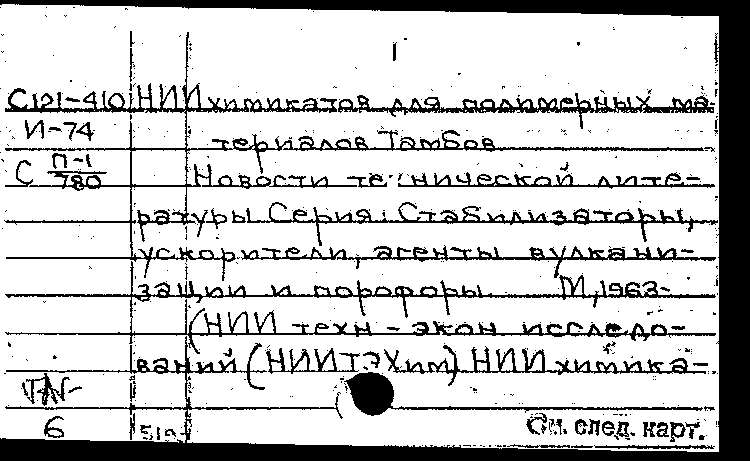 1
С121-410 НИИ химикатов для полимерных ма-
И-74 териалов Тамбов
С П-1/780 Новости технической лите-
ратуры Серия: Стабилизаторы,
ускорители, агенты вулкани-
зации и порофоры М., 1963-
(НИИ техн-экон. исследо-
ваний (НИИТЭХим) НИИ химика-
6
См. след. карт.